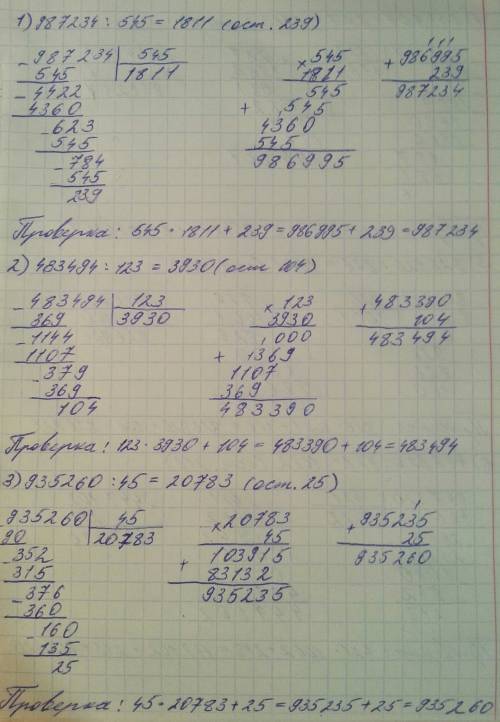 1) 987234 : 545 = 1811 (ост. 239)
- 987234 | 545
545 | 1811
- 4422
4360
- 623
545
- 784
545
239
× 545
1811
545
+ 545
4360
545
986995
111
+ 986995
239
987234
Проверка: 545 · 1811 + 239 = 986995 + 239 = 987234
2) 483494 : 123 = 3930 (ост 104)
- 483494 | 123
369 | 3930
- 1144
1107
- 379
369
104
× 123
3930
000
+ 1369
1107
369
483390
+ 483390
104
483494
Проверка: 123 · 3930 + 104 = 483390 + 104 = 483494
3) 935260 : 45 = 20783 (ост. 25)
935260 | 45
90 | 20783
- 352
315
- 376
360
- 160
135
25
× 20783
45
+ 103915
83132
935235
1
+ 935235
25
935260
Проверка: 45 · 20783 + 25 = 935235 + 25 = 935260